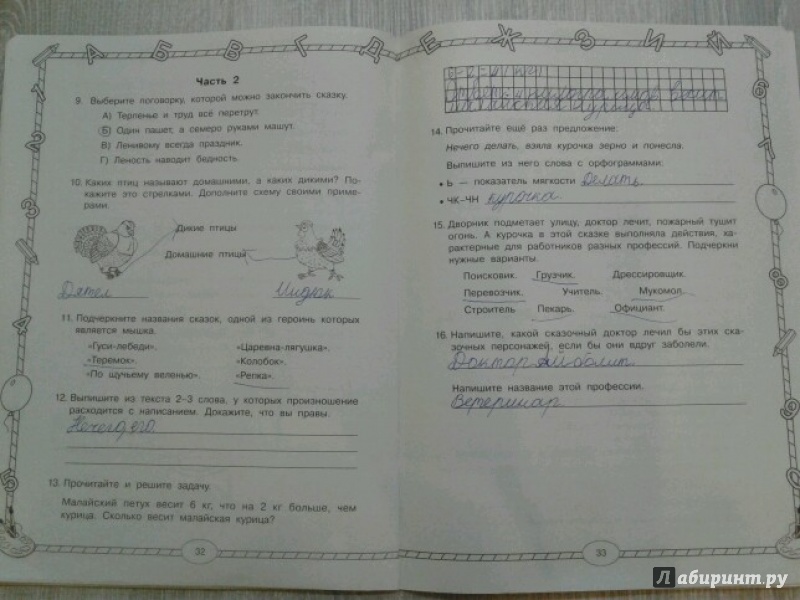 А Б В Г Д Е Ж З И Й
Часть 2
9. Выберите поговорку, которой можно закончить сказку.
А) Терпенье и труд всё перетрут.
Б) Один пашет, а семеро руками машут.
В) Ленивому всегда праздник.
Г) Леность наводит бедность.
10. Каких птиц называют домашними, а каких дикими? По-
кажите это стрелками. Дополните схему своими приме-
рами.
Дикие птицы
Домашние птицы
Дятел Индюк
11. Подчеркните названия сказок, одной из героинь которых
является мышка.
«Гуси-лебеди». «Царевна-лягушка».
«Теремок». «Колобок».
«По щучьему веленью». «Репка».
12. Выпишите из текста 2–3 слова, у которых произношение
расходится с написанием. Докажите, что вы правы.
13. Прочитайте и решите задачу.
Малайский петух весит 6 кг, что на 2 кг больше, чем
курица. Сколько весит малайская курица?
32
14. Прочитайте ещё раз предложение:
Нечего делать, взяла курочка зерно и понесла.
Выпишите из него слова с орфограммами:
• Ь — показатель мягкости Делать
• ЧК–ЧН курочка
15. Дворник подметает улицу, доктор лечит, пожарный тушит
огонь. А курочка в этой сказке выполняла действия, ха-
рактерные для работников разных профессий. Подчеркни
нужные варианты.
Поисковик. Грузчик. Дрессировщик.
Перевозчик. Учитель. Мукомол.
Строитель Пекарь. Официант.
16. Напишите, какой сказочный доктор лечил бы этих ска-
зочных персонажей, если бы они вдруг заболели.
Доктор Айболит
Напишите название этой профессии.
Ветеринар
33
Лабиринт.ру